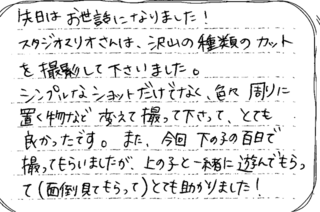 先日はお世話になりました！
スタジオマリオさんは、沢山の種類のカット
を撮影して下さいました。
シンプルなショットだけでなく、色々周りに
置く物など変えて撮って下さって、とても
良かったです。また、今回下の子の百日で
撮ってもらいましたが、上の子と一緒に遊んでもらっ
て(面倒見てもらって)とても助かりました！